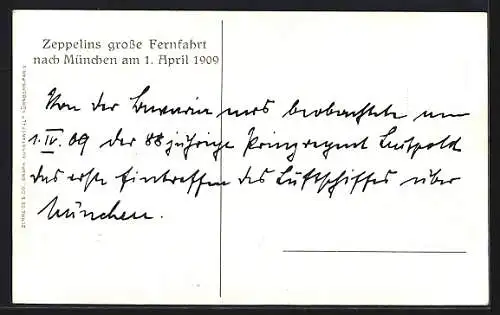 Zeppelins große Fernfahrt
nach München am 1. April 1909
Von der Bavaria aus beobachtete am
1. IV. 09 der 88 jährige Prinzregent Luitpold
das erste Eintreffen des Luftschiffes über
München.